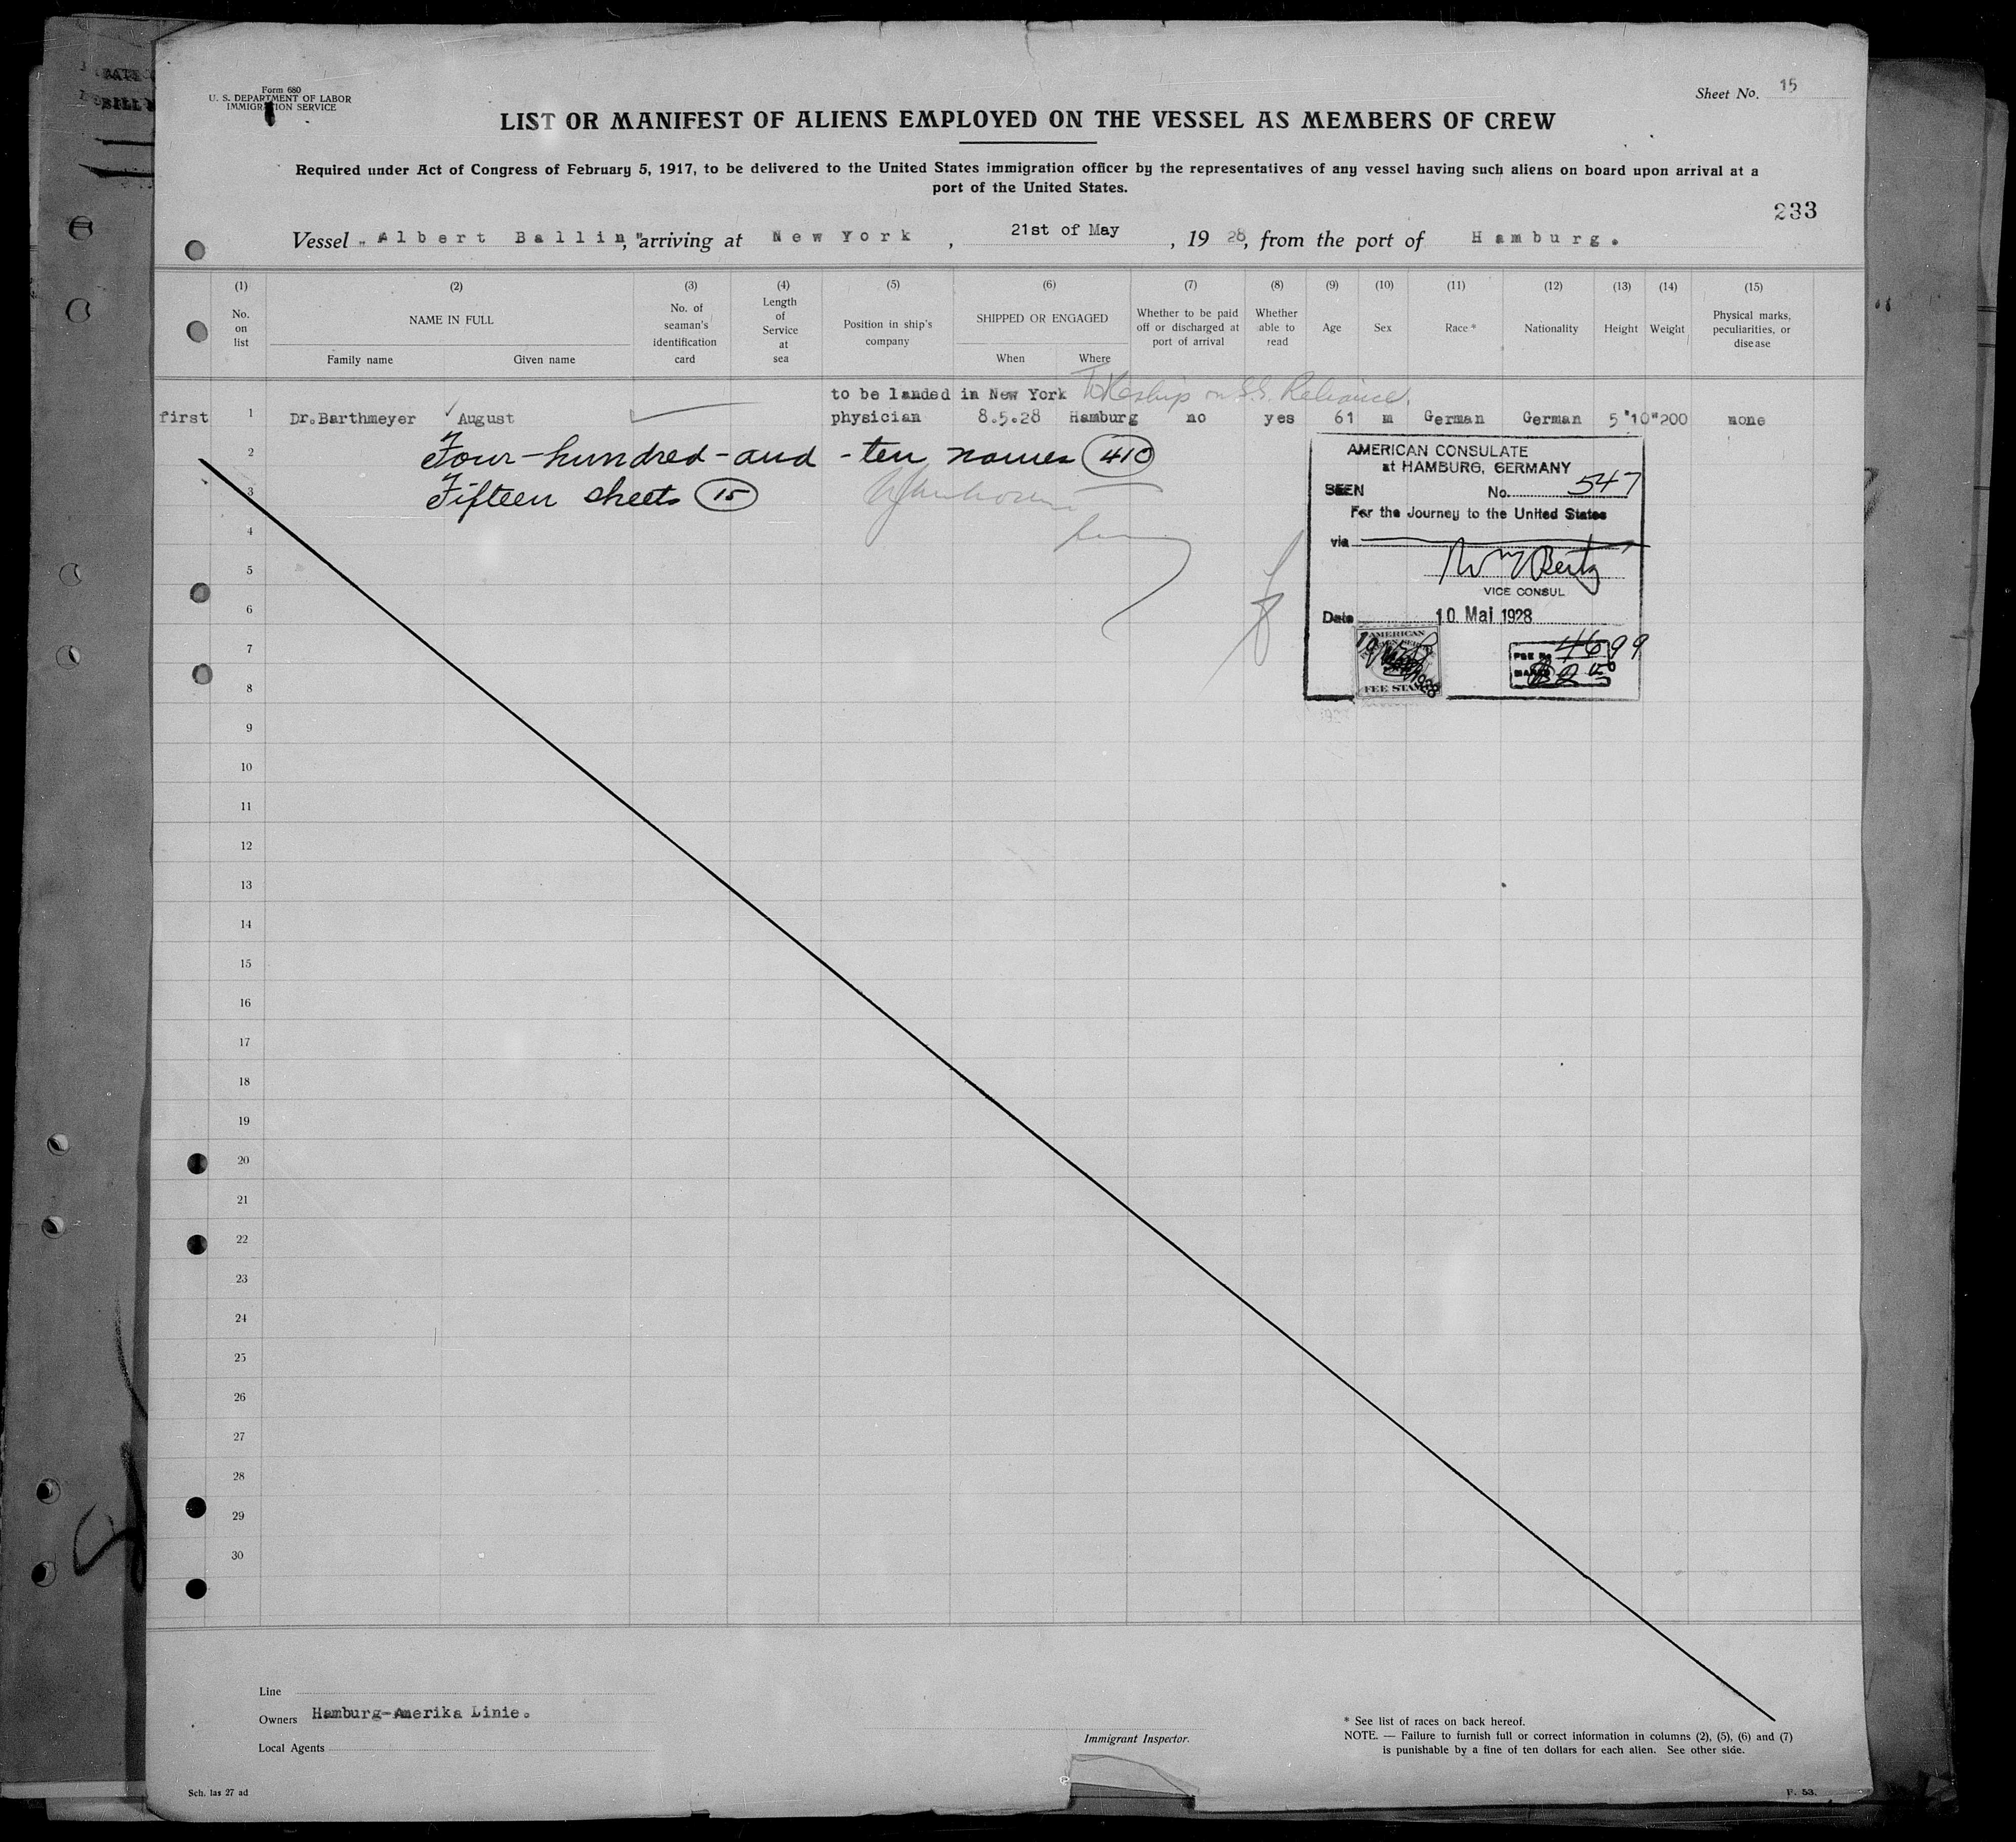 Form 680
U. S. DEPARTMENT OF LABOR
IMMIGRATION SERVICE
Sheet No. 15
LIST OR MANIFEST OF ALIENS EMPLOYED ON THE VESSEL AS MEMBERS OF CREW
Required under Act of Congress of February 5, 1917, to be delivered to the United States immigration officer by the representatives of any vessel having such aliens on board upon arrival at a
port of the United States.
233
Vessel "Albert Ballin", arriving at New York, 21st of May, 1928, from the port of Hamburg.
(1) (2) (3) (4) (5) (6) (7) (8) (9) (10) (11) (12) (13) (14) (15)
No. on list
NAME IN FULL
Family name Given name
No. of seaman's identification card
Length of Service at sea
Position in ship's company
SHIPPED OR ENGAGED
When Where
Whether to be paid off or discharged at port of arrival
Whether able to read
Age
Sex
Race *
Nationality
Height
Weight
Physical marks, peculiarities, or disease
to be landed in New York To Reship on S.S. Reliance.
first 1 Dr.Barthmeyer August physician 8.5.28 Hamburg no yes 61 m German German 5'10" 200 none
2 Four-hundred-and-ten names 410
3 Fifteen sheets 15
AMERICAN CONSULATE
at HAMBURG, GERMANY
SEEN No. 547
For the Journey to the United States
via
VICE CONSUL
Date 10. Mai 1928
AMERICAN
FEE STAMP
4699
4
5
6
7
8
9
10
11
12
13
14
15
16
17
18
19
20
21
22
23
24
25
26
27
28
29
30
Line
Owners Hamburg-Amerika Linie.
Local Agents
Immigrant Inspector.
* See list of races on back hereof.
NOTE. — Failure to furnish full or correct information in columns (2), (5), (6) and (7)
is punishable by a fine of ten dollars for each alien. See other side.
Sch. las 27 ad
F. 53.